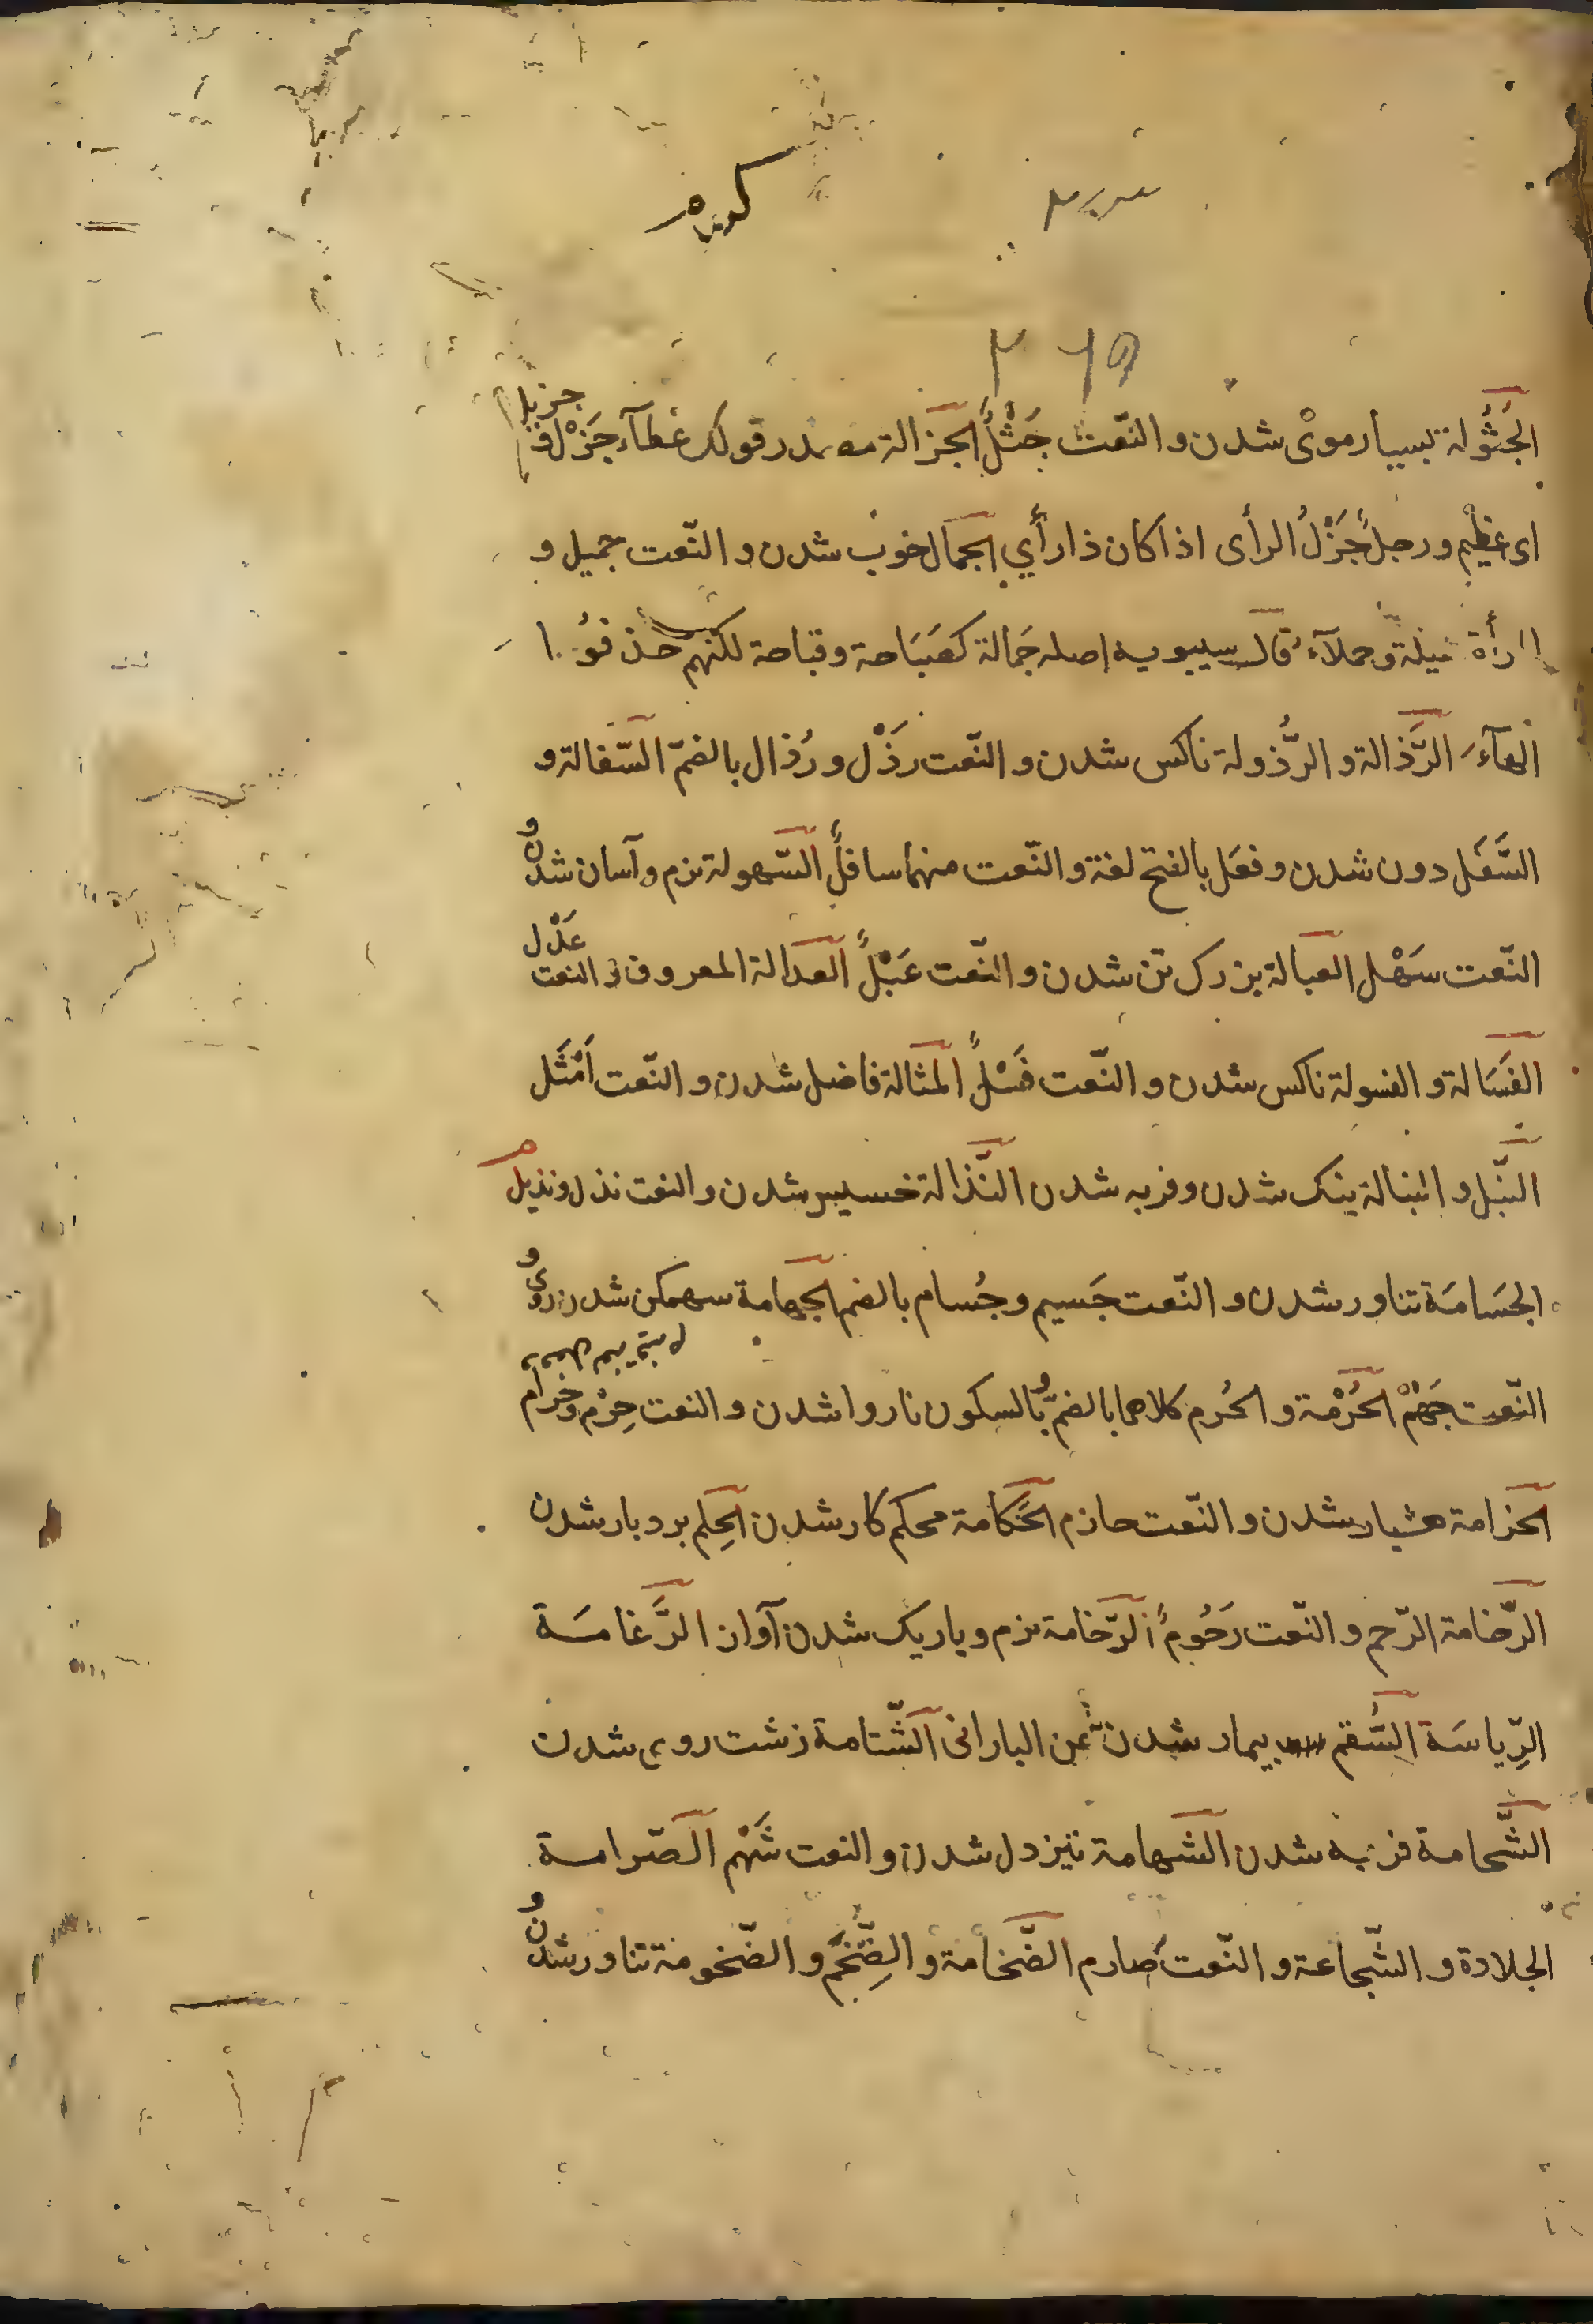 الجُثُولة بسیار موی شدن و النّعت جَثْلٌ الجَزالة مصدر قولک عَطآء جَزْل و جزیل
ای عظیم و رجلٌ جَزْلُ الرأی اذا کان ذا رأي الجمال خوب شدن و النّعت جمیل و
امرأة جمیلة و جملآء قال سیبویه اصله جَمالة کصَبَاحة و قباحة لکنهم حذفوا
الهآءَ الرَّذالة و الرُّذولة ناکس شدن و النّعت رَذْل و رُذال بالضمّ السّفالة و
السَّفَل دون شدن و فعَل بالفتح لغة و النّعت منهما سافلٌ السّهولة نرم و آسان شدن و
النّعت سَهْل العبالة بزرک تن شدن و النّعت عَبْلٌ العدالة المعروف و النعت عَدْل
الفَسَالة و الفسولة ناکس شدن و النّعت فَسْلٌ المثالة فاضل شدن و النّعت اَمْثَل
النّبل و النبالة نیک شدن و فربه شدن النَّذالة خسیس شدن و النعت نذل و نذیل م
الجَسَامَة تناور شدن و النّعت جَسیم و جُسام بالضم الجهامة سهمکن شدن روی و
النّعت جَهْمٌ الحُرْمة و الحُرم کلاهما بالضمّ و بالسکون ناروا شدن و النعت حِرْم و حَرام
الحزامة هشیار شدن و النّعت حازم الحَکامة محکم کار شدن الحِلم بردبار شدن
الرّخامة الرّحم و النّعت رَحُومٌ الرّخامة نرم و باریک شدن آواز الزَّعامَة
الرِّیاسَة السُّقم بیمار شدن عن البارانی الشّتامة زشت روی شدن
الشَّحامة فربه شدن الشهامة تیز دل شدن و النعت شَهْم الصّرامة
الجلادة و الشّجاعة و النّعت صارم الضّخامة و الضِّخَم و الضّخومة تناور شدن و